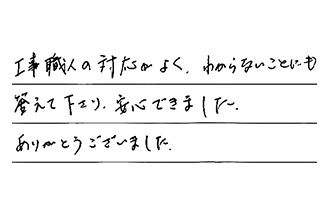 工事職人の対応がよく、わからないことにも
答えて下さり、安心できました。
ありがとうございました。